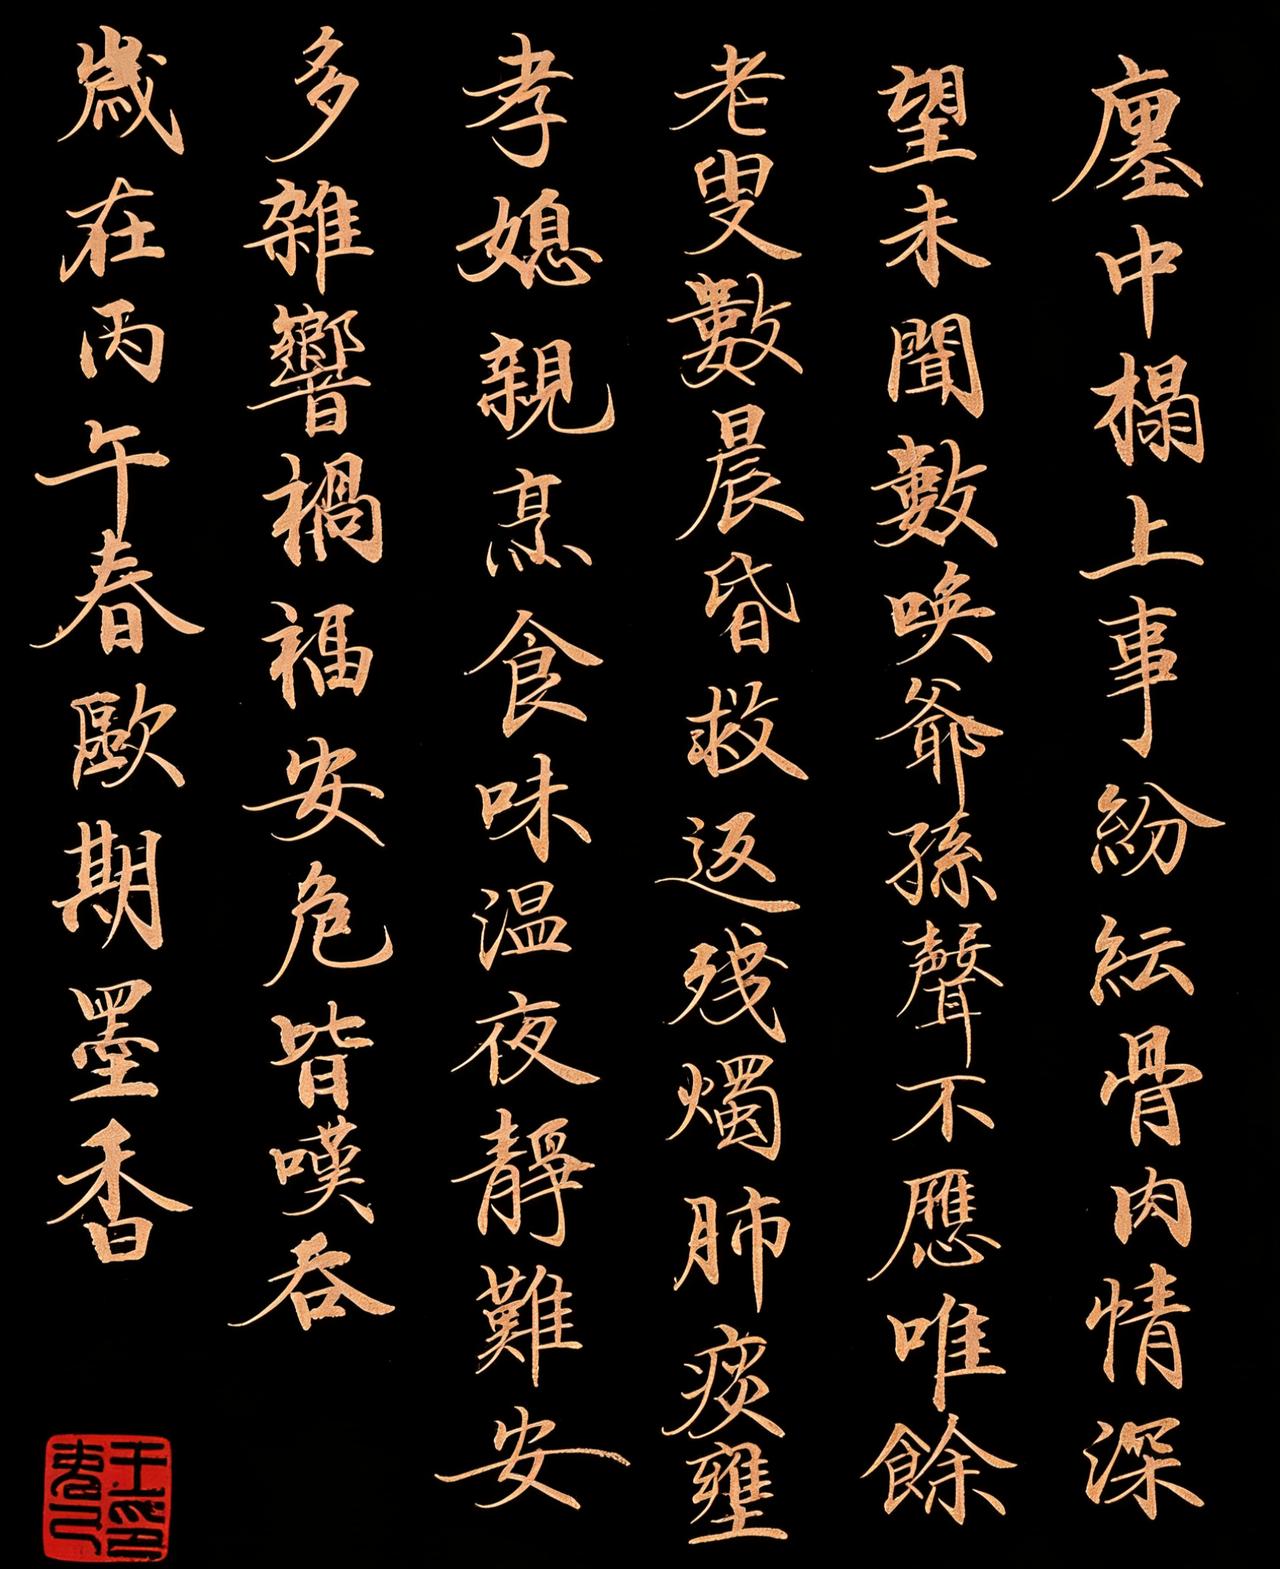 廛中榻上事紛紜骨肉情深
望未聞數喚爺孫聲不應唯餘
老叟數晨昏救返殘燭肺痰壅
孝媳親烹食味温夜靜難安
多雜響禍福安危皆嘆吞
歲在丙午春歐期墨香